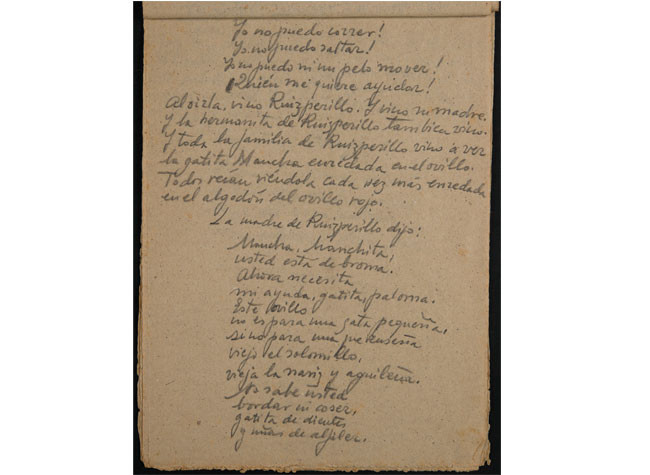 Yo no puedo correr!
Yo no puedo saltar!
Yo no puedo ni un pelo mover!
¡Quién me quiere ayudar!
Al oirla, vino Ruizperillo. Y vino su madre.
Y la hermanita de Ruizperillo tambien vino.
Y toda la familia de Ruizperillo vino a ver
la gatita Mancha enredada en el ovillo.
Todos reían viéndola cada vez más enredada
en el algodón del ovillo rojo.
La madre de Ruizperillo dijo:
Mancha, Manchita,
usted está de broma.
Ahora necesita
mi ayuda, gatita, paloma.
Este ovillo
no es para una gata pequeña,
sino para una que enseña
viejo el solomillo,
vieja la nariz y aguileña.
No sabe usted
bordar ni coser,
gatita de dientes
y uñas de alfiler.